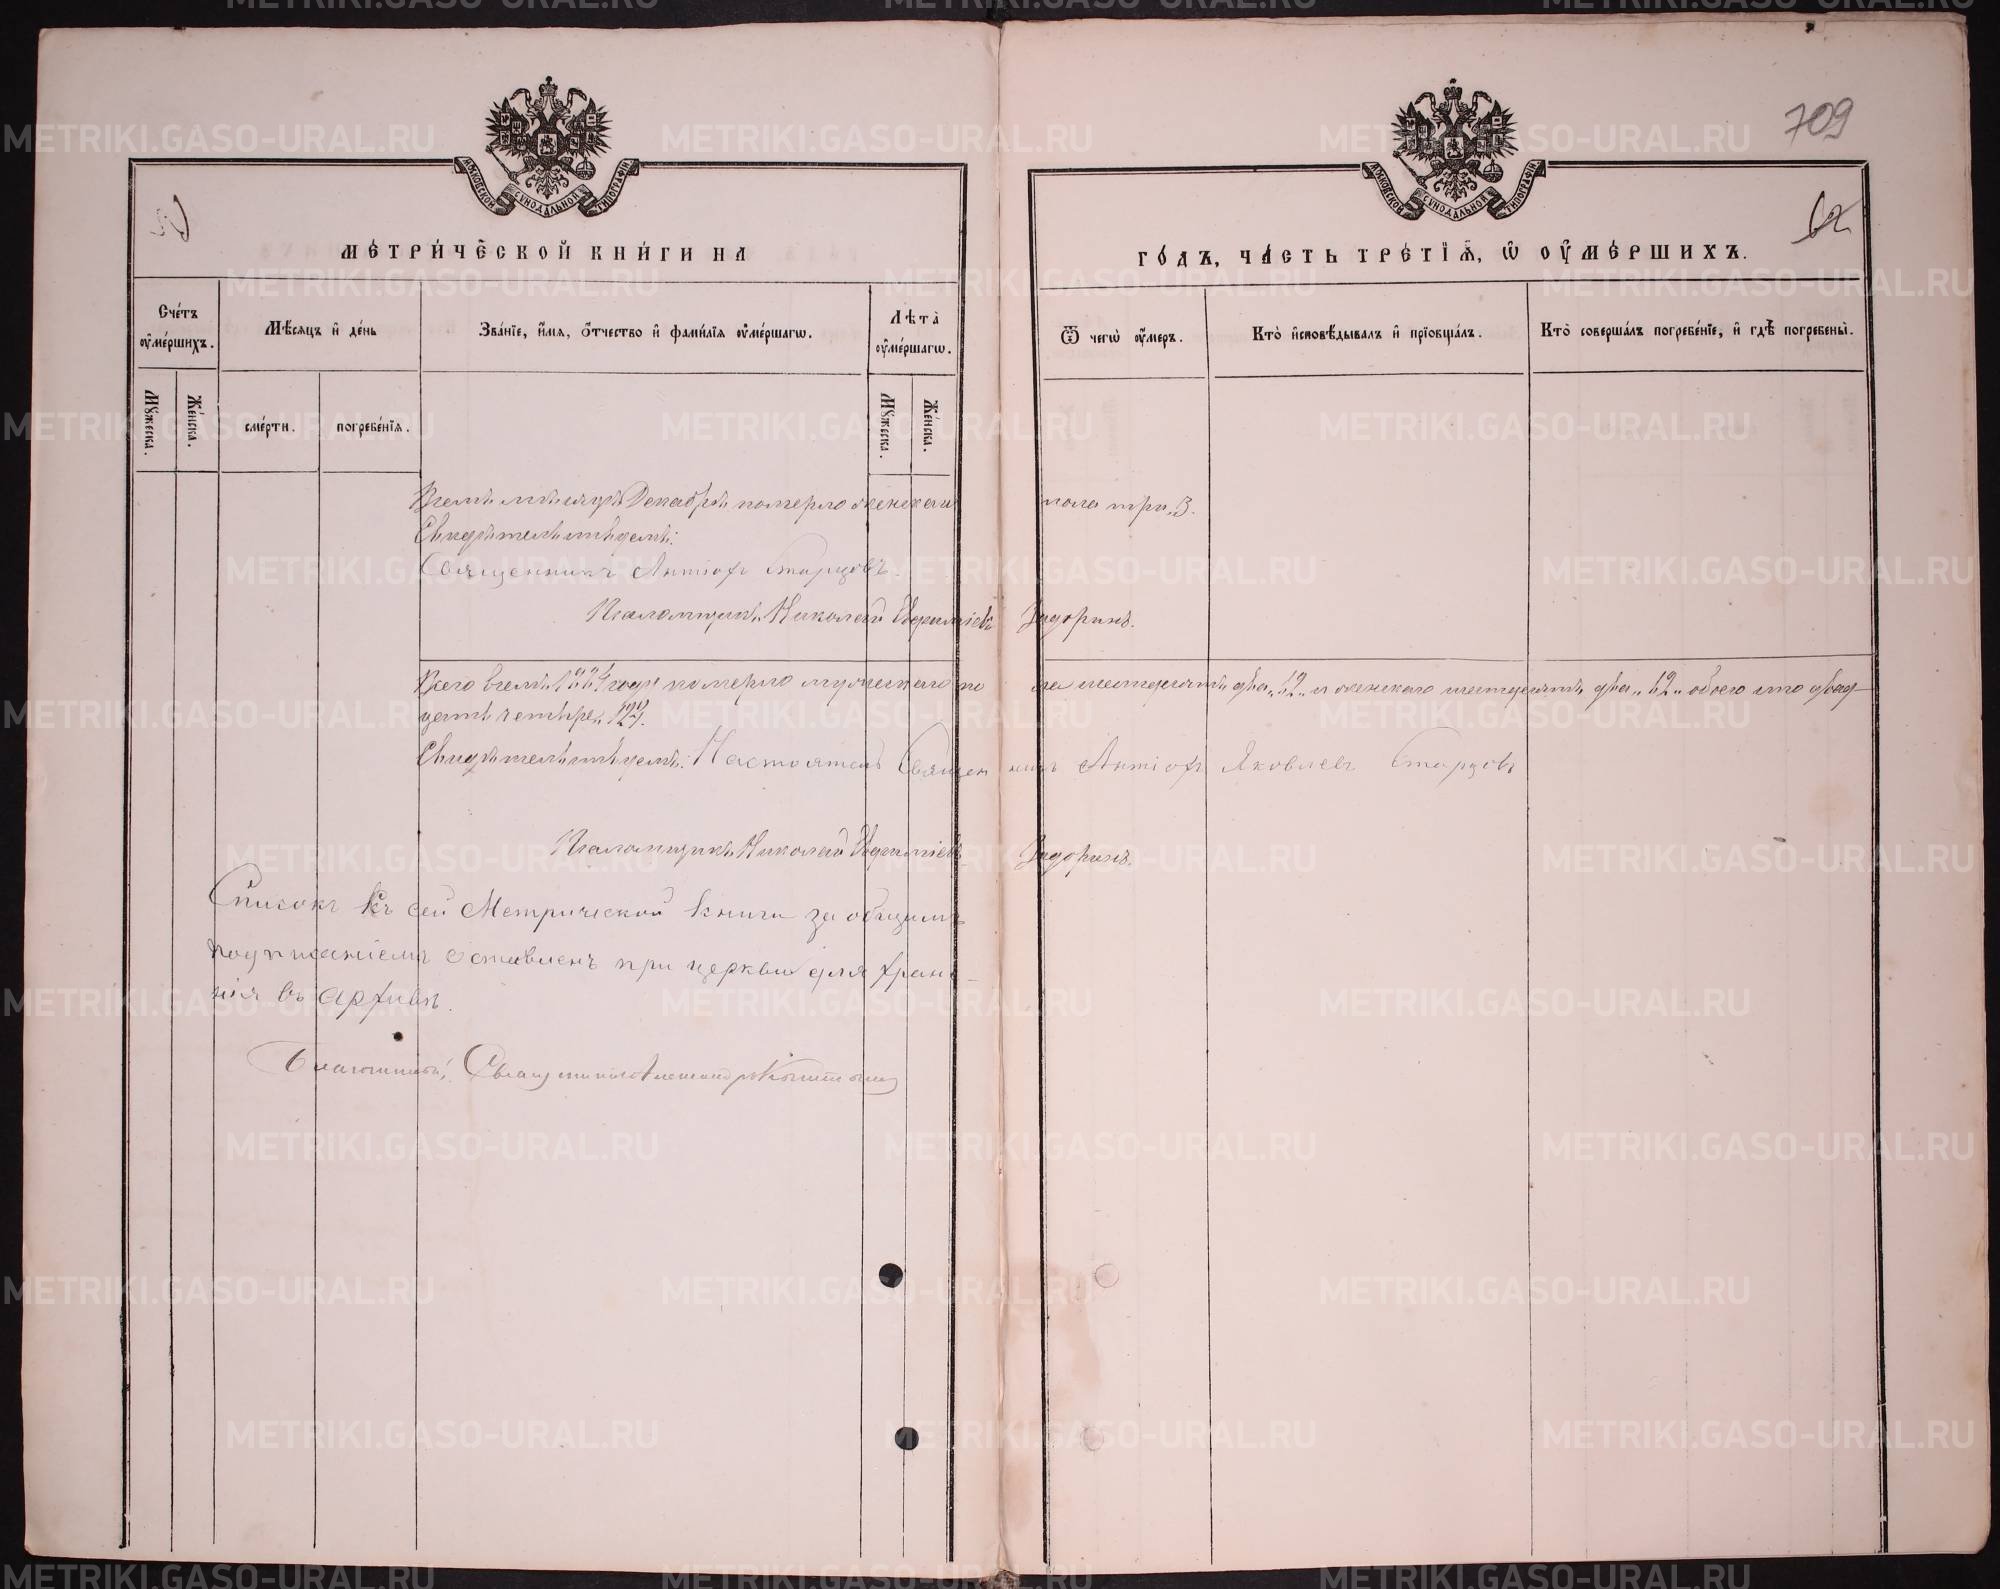 709
62
МОСКОВСКОЙ СѴНОДАЛЬНОЙ ТИПОГРАФІИ
МОСКОВСКОЙ СѴНОДАЛЬНОЙ ТИПОГРАФІИ
МЕТРИ́ЧЕСКОЙ КНИ́ГИ НА
ГО́ДЪ, ЧА́СТЬ ТРЕ́ТІѦ, Ѡ҆ ОУ҆МЕ́РШИХЪ.
Сче́тъ оу҆ме́ршихъ.
Мѣ́сяцъ и҆ де́нь
Зва́нїе, и҆́мя, ѻ҆́тчество и҆ фами́лїя оу҆ме́ршагѡ.
Лѣ́та оу҆ме́ршагѡ.
Ѿ чегѡ̀ оу҆́меръ.
Кто̀ и҆сповѣ́дывалъ и҆ прїѡбща́лъ.
Кто̀ соверша́лъ погребе́нїе, и҆ гдѣ̀ погребены̀.
Мꙋ́жеска.
Же́нска.
сме́рти.
погребе́нїя.
Мꙋ́жеска.
Же́нска.
Всемъ мѣсяцѣ Декабрѣ померло женскаго пола три „3.
Свидѣтельствуемъ:
Священникъ Антіохъ Старцовъ.
Псаломщикъ Николай Евфиміевъ Задоринъ.
Всего в семъ 1884 году померло мужескаго пола шестдесятъ два „62„ и женскаго шестдесятъ два „62„ обоего сто двад
цать четыре „124.
Свидѣтельствуемъ: Настоятель Священникъ Антіохъ Яковлевъ Старцовъ
Псаломщикъ Николай Евфиміевъ Задоринъ.
Списокъ къ сей Метрической книги за общимъ
подписаніемъ оставленъ при церкви для хране-
нія въ архивѣ.
Благочинный, Священникъ Александръ
METRIKI.GASO-URAL.RU